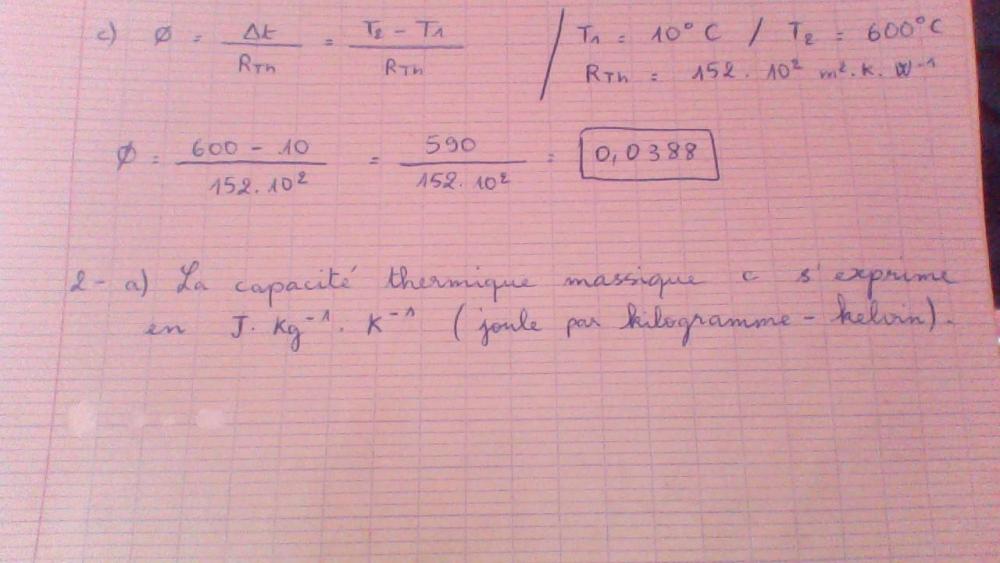 c) Ø = Δt / RTh = T2 - T1 / RTh / T1 = 10°C / T2 = 600°C
RTh = 152 . 10² m². K. W⁻¹
Ø = 600 - 10 / 152 . 10² = 590 / 152 . 10² = 0,0388
2- a) La capacité thermique massique c s'exprime
en J. Kg⁻¹. K⁻¹ (joule par kilogramme - kelvin).